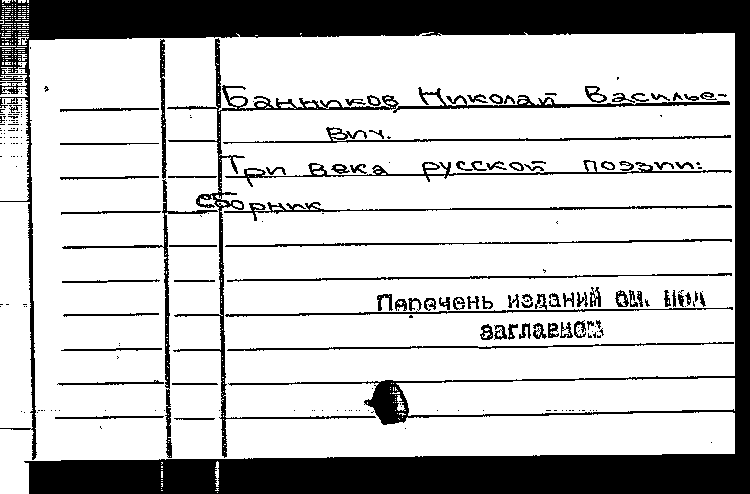 Банников Николай Василье-
вич.
Три века русской поэзии:
сборник
Перечень изданий см. под
заглавием